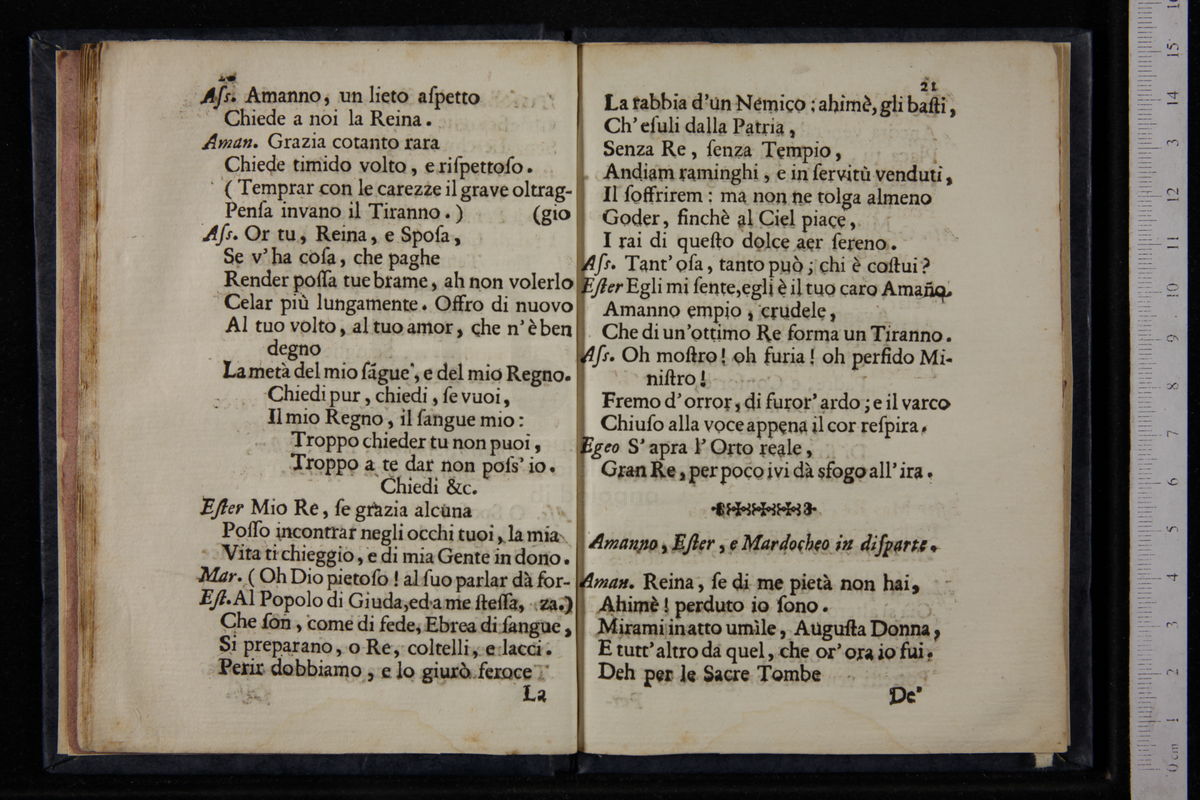 20
Aſſ. Amanno, un lieto aſpetto
Chiede a noi la Reina.
Aman. Grazia cotanto rara
Chiede timido volto, e riſpettoſo.
(Temprar con le carezze il grave oltrag-
Penſa invano il Tiranno.) (gio
Aſſ. Or tu, Reina, e Spoſa,
Se v'ha coſa, che paghe
Render poſſa tue brame, ah non volerlo
Celar più lungamente. Offro di nuovo
Al tuo volto, al tuo amor, che n'è ben
degno
La metà del mio ſāgue, e del mio Regno.
Chiedi pur, chiedi, ſe vuoi,
Il mio Regno, il ſangue mio:
Troppo chieder tu non puoi,
Troppo a te dar non poſs' io.
Chiedi &c.
Eſter Mio Re, ſe grazia alcuna
Poſſo incontrar negli occhi tuoi, la mia
Vita ti chieggio, e di mia Gente in dono.
Mar. (Oh Dio pietoſo! al ſuo parlar dà for-
Eſt. Al Popolo di Giuda, ed a me ſteſſa, za.)
Che ſon, come di fede, Ebrea di ſangue,
Si preparano, o Re, coltelli, e lacci.
Perir dobbiamo, e lo giurò feroce
La
21
La rabbia d'un Nemico: ahimè, gli baſti,
Ch' eſuli dalla Patria,
Senza Re, ſenza Tempio,
Andiam raminghi, e in ſervitù venduti,
Il ſoffrirem: ma non ne tolga almeno
Goder, finchè al Ciel piace,
I rai di queſto dolce aer ſereno.
Aſſ. Tant' oſa, tanto può; chi è coſtui?
Eſter Egli mi ſente, egli è il tuo caro Amañо.
Amanno empio, crudele,
Che di un' ottimo Re forma un Tiranno.
Aſſ. Oh moſtro! oh furia! oh perfido Mi-
niſtro!
Fremo d' orror, di furor' ardo; e il varco
Chiuſo alla voce appena il cor reſpira.
Egeo S' apra l' Orto reale,
Gran Re, per poco ivi dà sfogo all' ira.
Amanno, Eſter, e Mardocheo in diſparte.
Aman. Reina, ſe di me pietà non hai,
Ahimè! perduto io ſono.
Mirami in atto umìle, Auguſta Donna,
E tutt' altro da quel, che or' ora io fui.
Deh per le Sacre Tombe
De'